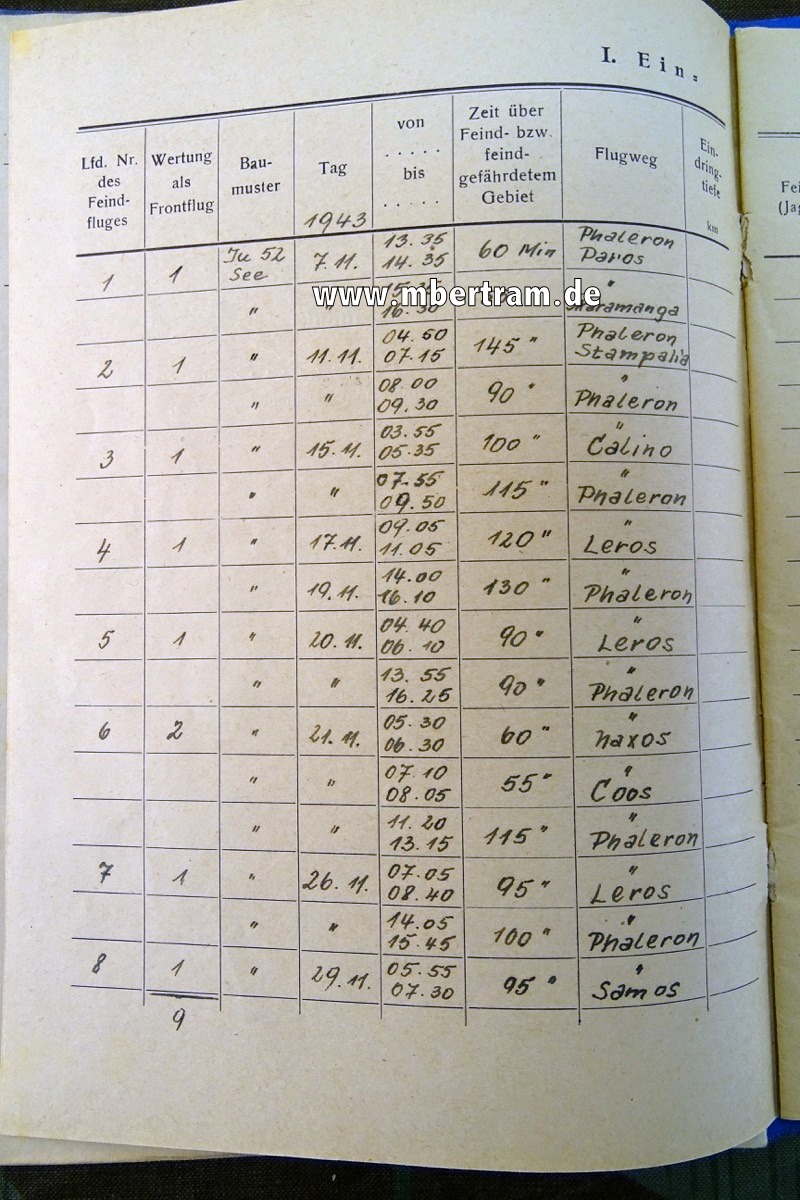 I. Ein=
Lfd. Nr. des Feind-fluges | Wertung als Frontflug | Bau-muster | Tag 1943 | von ..... bis ..... | Zeit über Feind- bzw. feind-gefährdetem Gebiet | Flugweg | Ein-dring-tiefe km
1 1 Ju 52 See 7.11. 13.35 14.35 60 Min Phaleron Paros
www.mbertram.de
" 16.30 "
2 1 " 11.11. 04.50 07.15 145 " Phaleron Stampalia
" " 08.00 09.30 90 " " Phaleron
3 1 " 15.11. 03.55 05.35 100 " " Calino
" " 07.55 09.50 115 " " Phaleron
4 1 " 17.11. 09.05 11.05 120 " " Leros
" 19.11. 14.00 16.10 130 " " Phaleron
5 1 " 20.11. 04.40 06.10 90 " " Leros
" " 13.55 16.25 90 " " Phaleron
6 2 " 21.11. 05.30 06.30 60 " " Naxos
" " 07.10 08.05 55 " " Coos
" " 11.20 13.15 115 " " Phaleron
7 1 " 26.11. 07.05 08.40 95 " " Leros
" " 14.05 15.45 100 " " Phaleron
8 1 " 29.11. 05.55 07.30 95 " " Samos
9
Fei
(Jag